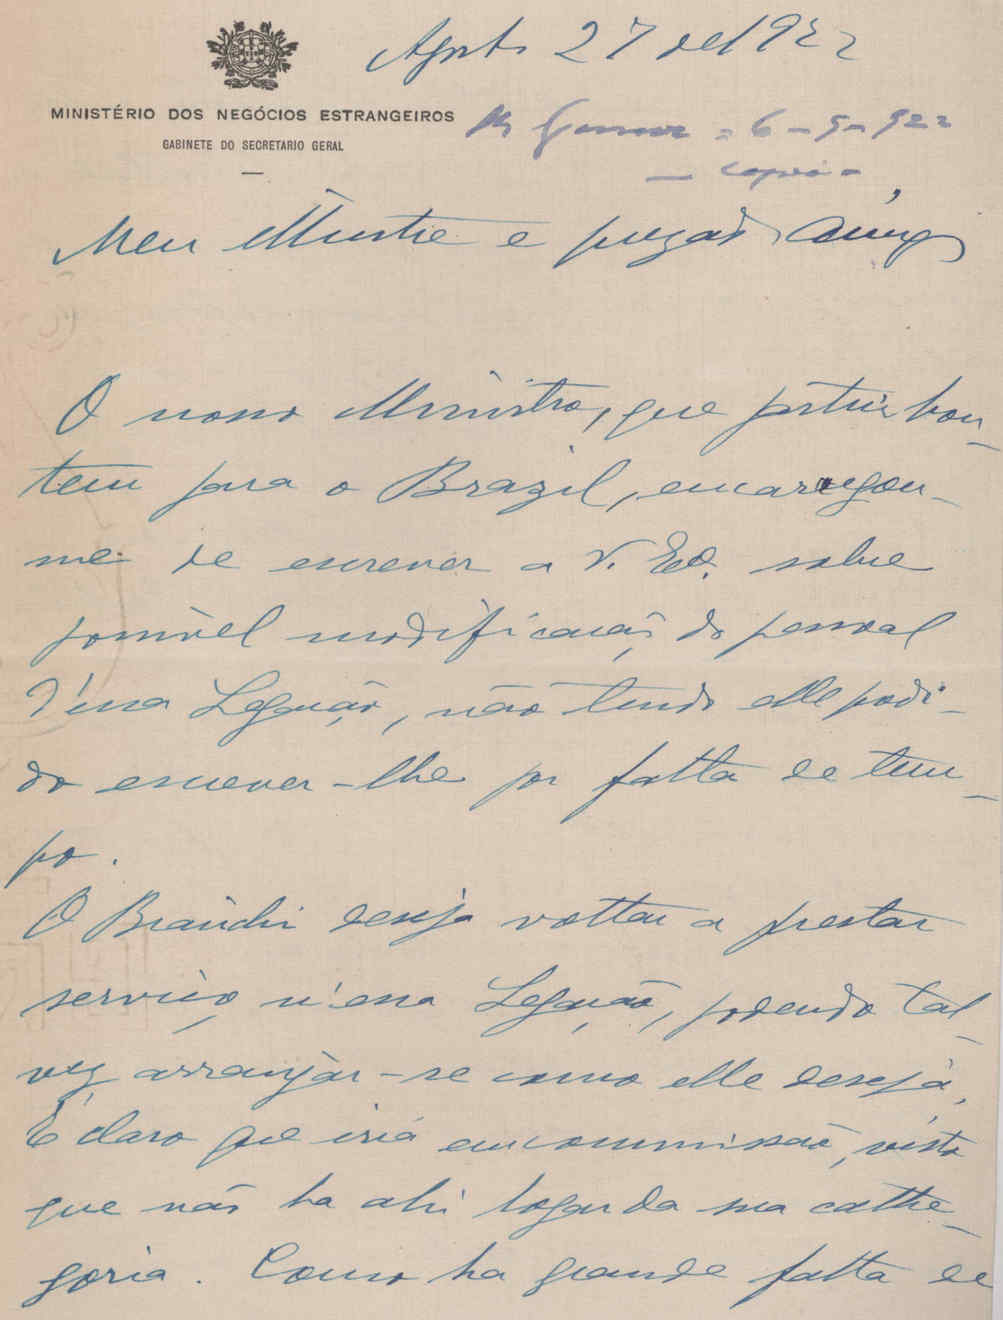 Agosto 27 de 1922
MINISTÉRIO DOS NEGÓCIOS ESTRANGEIROS
GABINETE DO SECRETARIO GERAL
6-9-922
— copia -
Meu Illustre e prezado Amigo
O nosso Ministro, que partiu hon-
tem para o Brazil, encarregou-
me de escrever a V. Exª. sobre
possivel modificação do pessoal
d'essa Legação, não tendo elle podi-
do escrever-lhe por falta de tem-
po.
O Bianchi deseja voltar a prestar
serviço n'essa Legação, podendo tal-
vez arranjar-se como elle deseja.
É claro que iria em commissão, visto
que não ha ahi logar da sua cathe-
goria. Como ha grande falta de